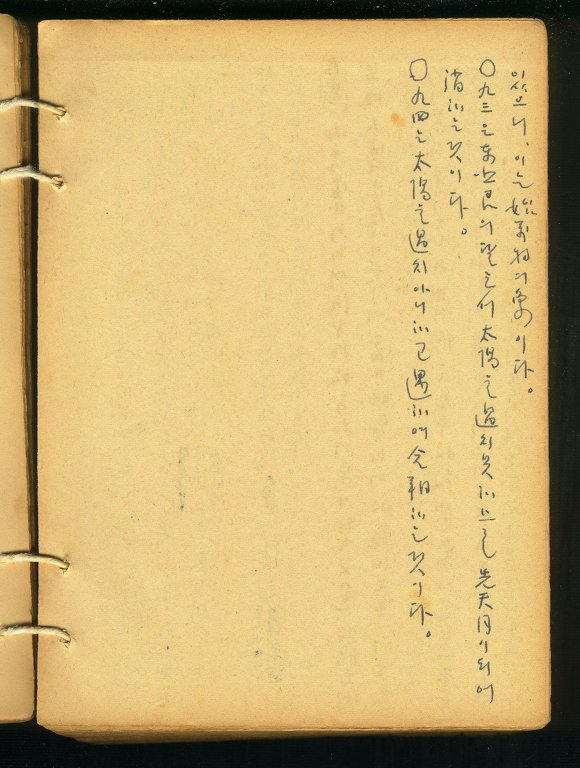 있으니, 이는 始萬物의 象이다.
○九三은 東北艮의 달로서 太陽을 過치못하므로 先天月이되어
消하는것이다.
○九四는 太陽을 過치아니하고 遇하여 合朔하는것이다.